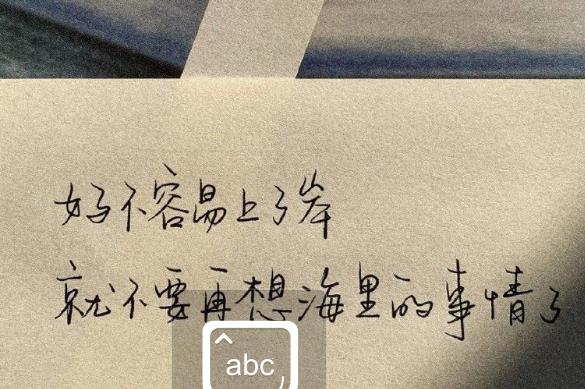 好不容易上了岸
就不要再想海里的事情了
abc